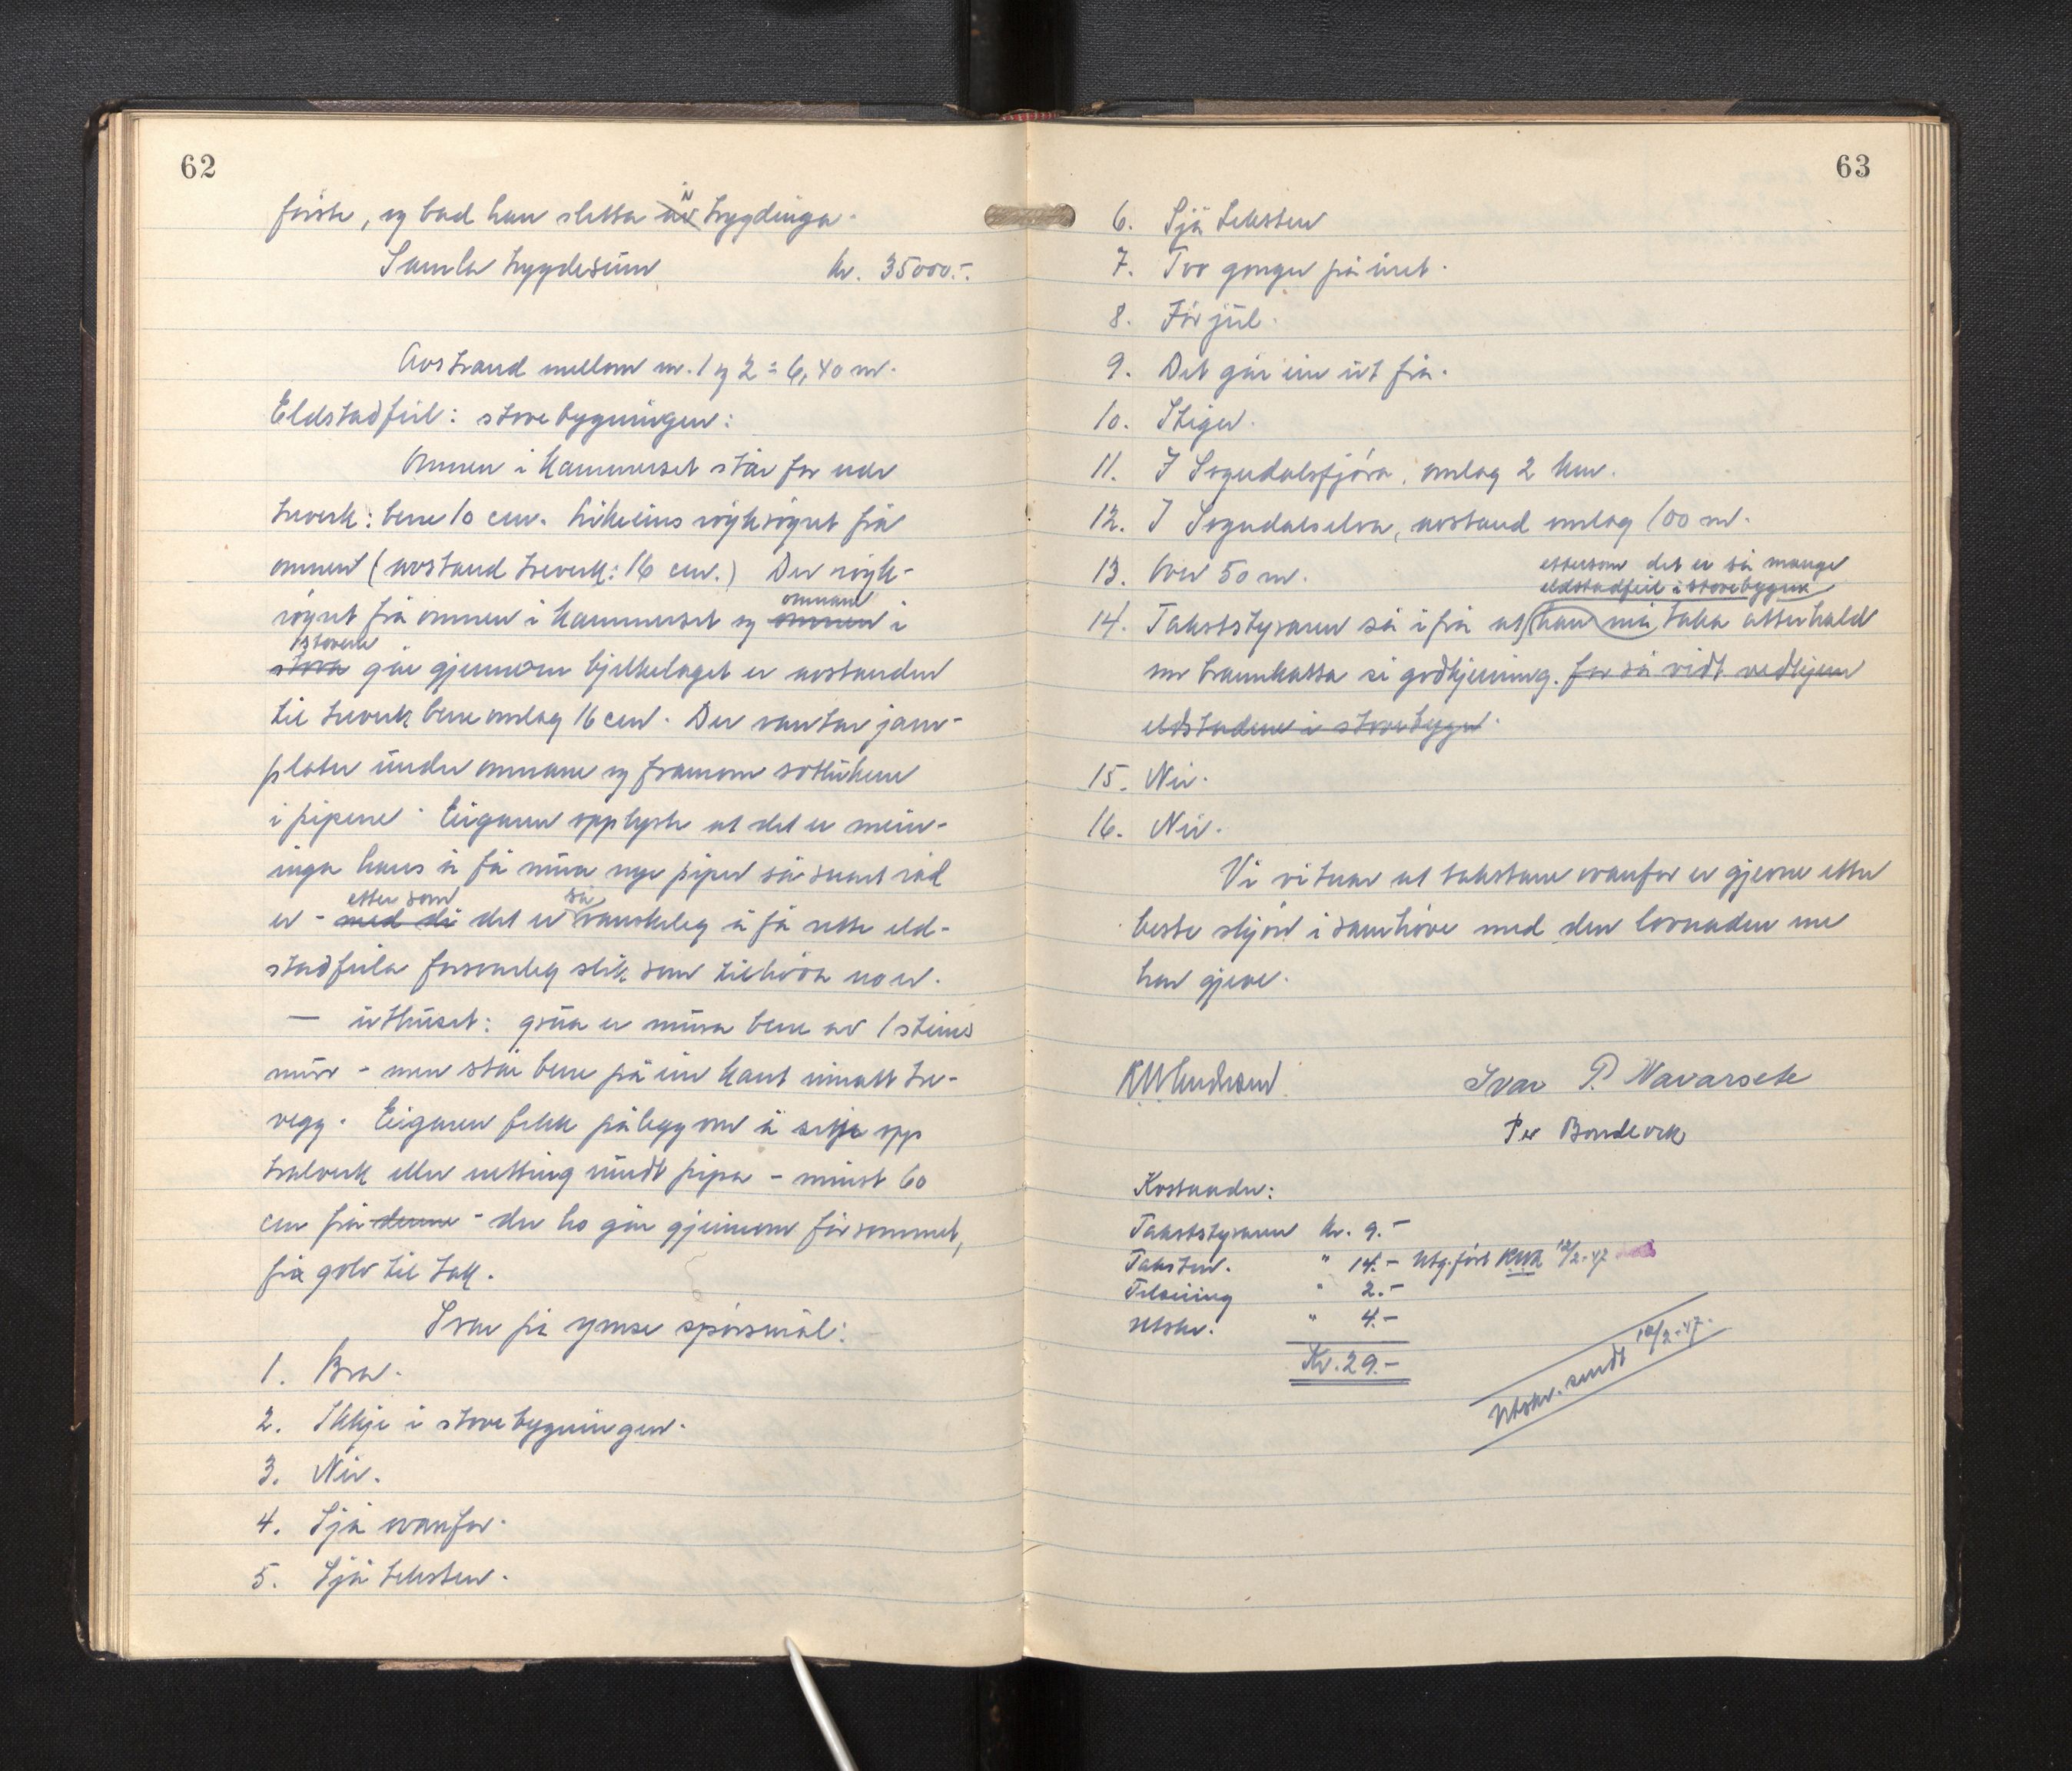 62
første, og bad han sletta av trygdinga.
Samla trygdesum kr. 35000.-
Avstand mellom nr. 1 og 2 = 6,40 m.
Eldstadfeil: stovebygningen:
Omnen i kammerset står for nær
treverk: bere 10 cm. Likeeins røykrøyret frå
omnen (avstand treverk: 16 cm.) Der røyk-
omnane
røyret frå omnen i kammerset og omnen i
stovene
stova går gjennom bjelkelaget er avstanden
til treverk bere omlag 16 cm. Der vantar jarn-
plater under omnane og framom sotlukene
i pipene. Eigaren opplyste at det er mein-
inga hans å få mura nye piper så snart råd
ettersom så
er - med di det er vanskeleg å få retta eld-
stadfeila forsvarleg slik som tilhøva no er.
— uthuset: grua er mura bere av 1 steins
mur - men står bere på ein kant innatt tre-
vegg. Eigaren fekk pålegg om å setje opp
tralverk eller netting rundt pipa - minst 60
cm frå denne - der ho går gjennom fôrrommet,
frå golv til tak.
Svar på ymse spørsmål:
1. Bra.
2. Ikkje i stovebygningen.
3. Nei.
4. Sjå ovanfor.
5. Sjå teksten.
63
6. Sjå teksten
7. Tvo gonger på året.
8. Før jul.
9. Det går ein ut frå.
10. Stiger.
11. I Sogndalsfjøra, omlag 2 km.
12. I Sogndalselva, avstand omlag 100 m.
13. Over 50 m.
ettersom det er så mange
eldstadfeil i stovebygnen
14. Takststyraren sa i frå at han må taka atterhald
om brannkassa si godkjenning. for så vidt vedkjem
eldstadene i stovebygn.
15. Nei.
16. Nei.
Vi vitnar at takstane ovanfor er gjevne etter
beste skjøn i samhøve med den lovnaden me
har gjeve.
Ivar P. Navarsete
Per Bondevik
Kostnader:
Takststyraren kr. 9.-
Takstm. " 14.- Utg. ført 12/2-47
Tilseiing " 2.-
Utskr. " 4.-
Kr. 29.-
Utskr. sendt 12/2-47.